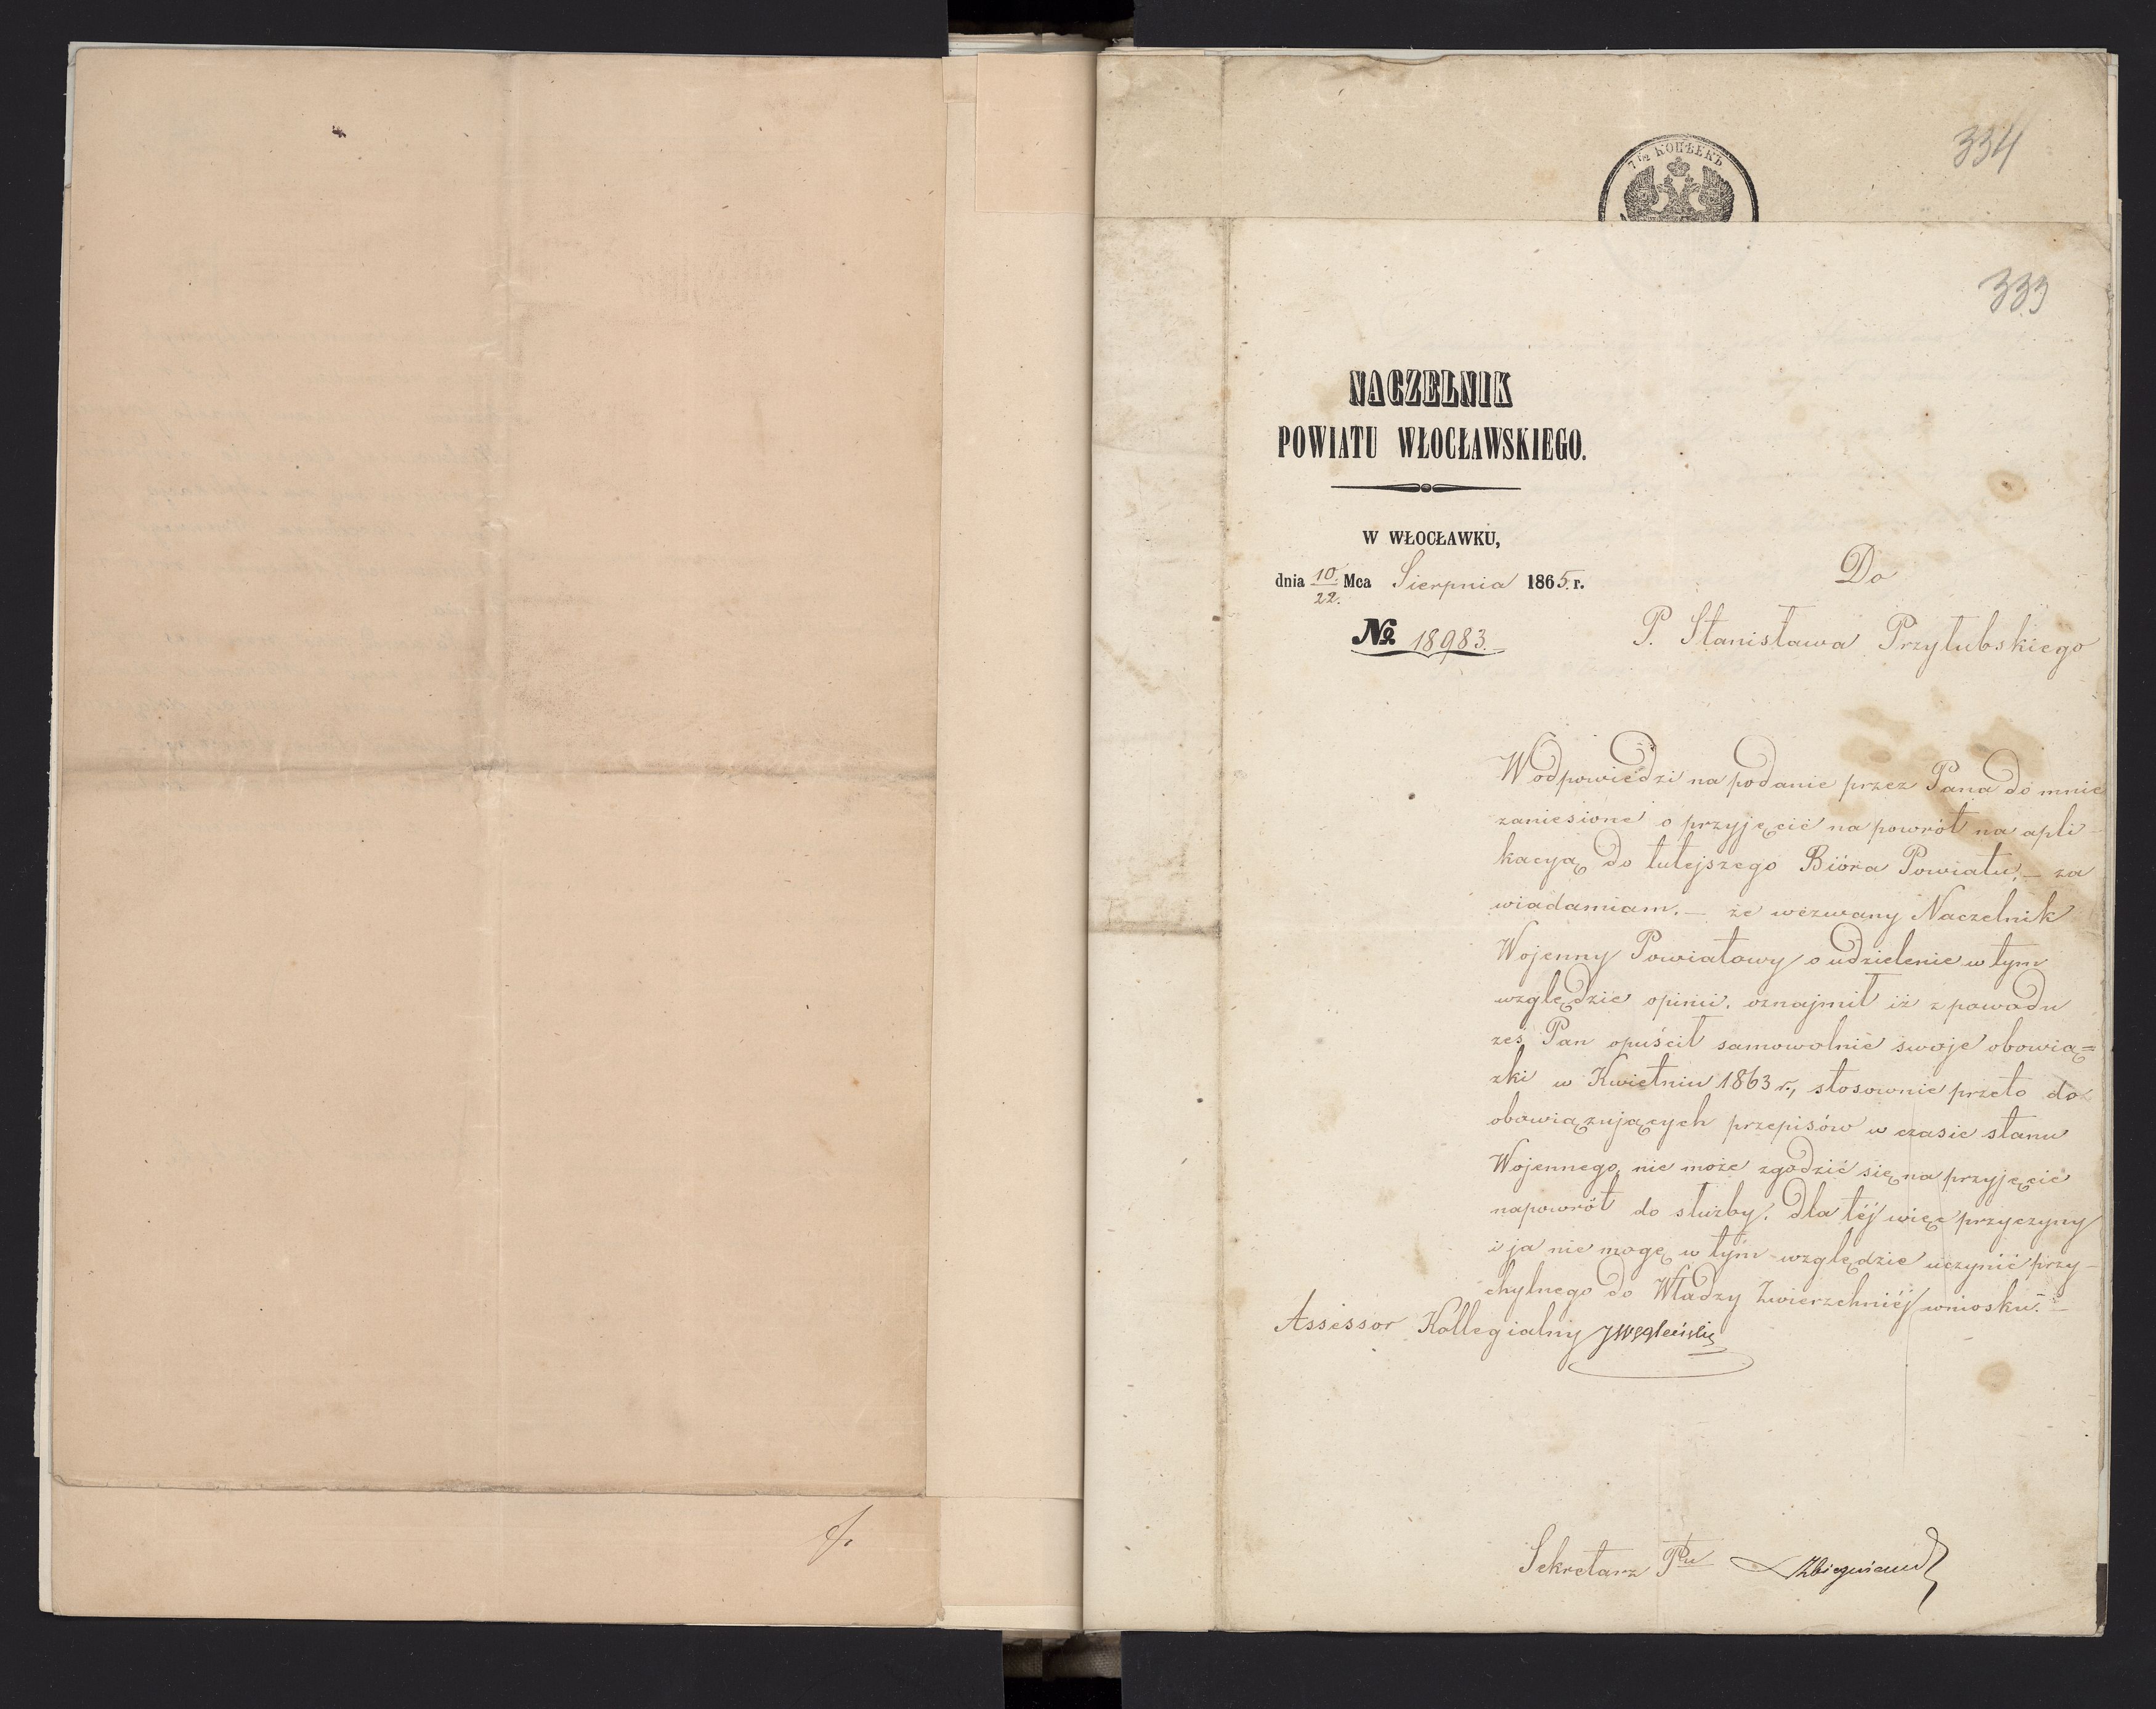 334
7 1/2 КОПѢЕКЪ
333
NACZELNIK
POWIATU WŁOCŁAWSKIEGO.
W WŁOCŁAWKU,
dnia 10/22. Mca Sierpnia 1865. r.
№ 18983.
Do
P. Stanisława Przyłubskiego
W odpowiedzi na podanie przez Pana do mnie
zaniesione o przyjęcie na powrót na apli-
kacyą do tutejszego Bióra Powiatu, – za
wiadamiam. – że wezwany Naczelnik
Wojenny Powiatowy o udzielenie w tym
względzie opinii, oznajmił iż z powodu
żeś Pan opuścił samowolnie swoje obowią=
zki w Kwietniu 1863 r., stosownie przeto do
obowiązujących przepisów w czasie stanu
Wojennego, nie może zgodzić się na przyjęcie
napowrót do służby. Dla téj więc przyczyny
i ja nie mogę w tym względzie uczynić przy-
chylnego do Władzy Zwierzchniéj wniosku. –
Assessor Kollegialny
Sekretarz